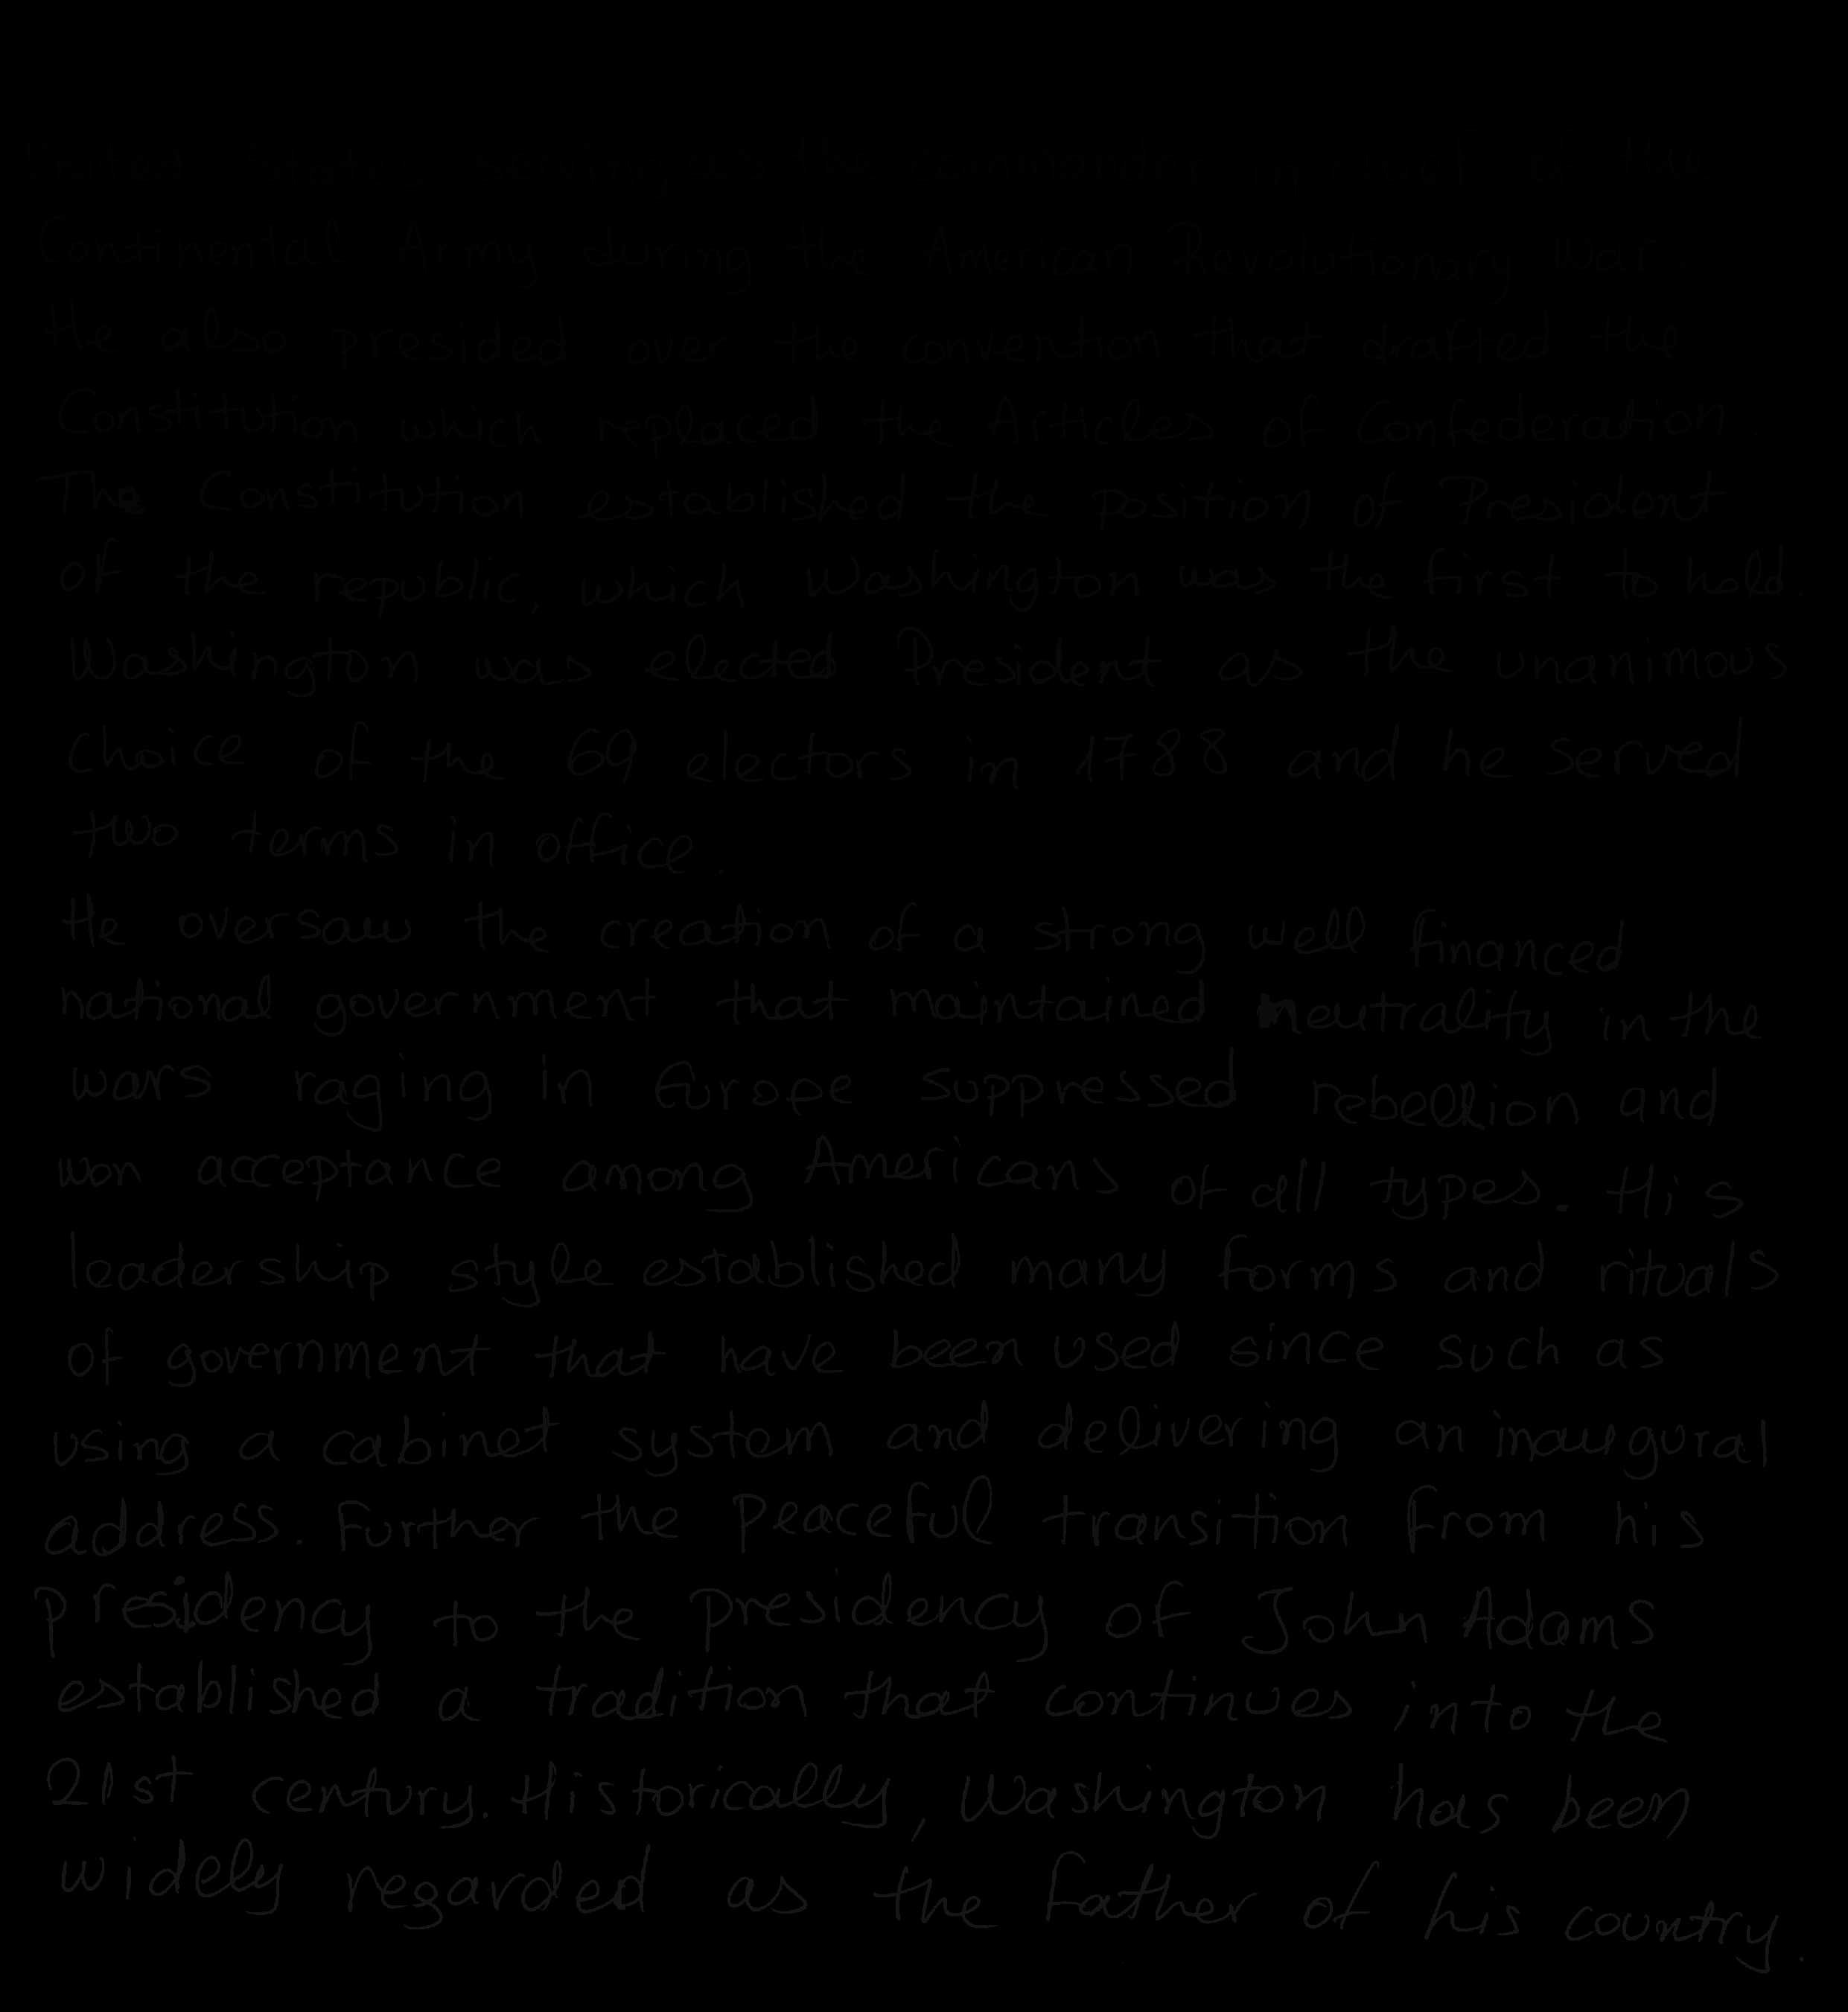 United States serving as the commander in chief of the
Continental Army during the American Revolutionary War.
He also presided over the convention that drafted the
Constitution which replaced the Articles of Confederation.
The Constitution established the position of President
of the republic, which Washington was the first to hold.
Washington was elected President as the unanimous
choice of the 69 electors in 1788 and he served
two terms in office.
He oversaw the creation of a strong well financed
national government that maintained neutrality in the
wars raging in Europe suppressed rebellion and
won acceptance among Americans of all types. His
leadership style established many forms and rituals
of government that have been used since such as
using a cabinet system and delivering an inaugural
address. Further the peaceful transition from his
presidency to the presidency of John Adams
established a tradition that continues into the
21st century. Historically, Washington has been
widely regarded as the father of his country.